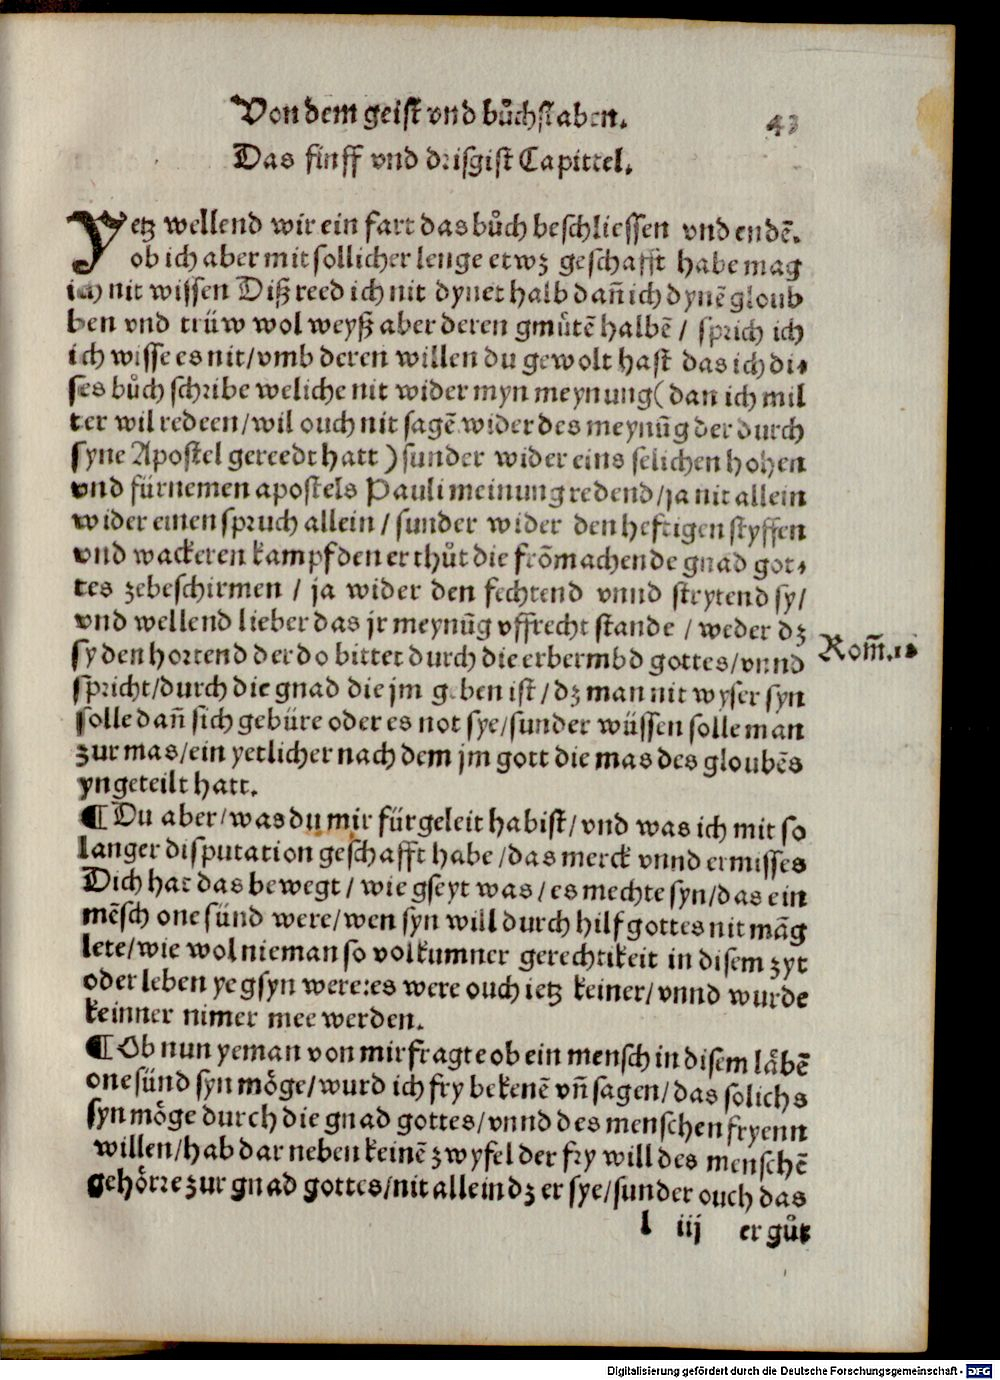 Von dem geist vnd bůchstaben.
43
Das finff vnd drisgist Capittel.
Yetz wellend wir ein fart das bůch beschliessen vnd endē.
ob ich aber mit sollicher lenge etwz geschafft habe mag
ich nit wissen Diß reed ich nit dynet halb dañ ich dynē gloub
ben vnd trüw wol weyß aber deren gmůtē halbē / sprich ich
ich wisse es nit/vmb deren willen du gewolt hast das ich di⸗
ses bůch schribe weliche nit wider myn meynung( dan ich mil
ter wil redeen/wil ouch nit sagē wider des meynūg der durch
syne Apostel gereedt hatt ) sunder wider eins selichen hohen
vnd fürnemen apostels Pauli meinung redend/ja nit allein
wider einen spruch allein / sunder wider den heftigen styffen
vnd wackeren kampf den er thůt die frōmachende gnad got⸗
tes zebeschirmen / ja wider den fechtend vnnd strytend sy/
vnd wellend lieber das jr meynūg vffrecht stande / weder dz
sy den hortend der do bittet durch die erbermbd gottes/vnnd
Rom̄.12
spricht/durch die gnad die jm geben ist/dz man nit wyser syn
solle dañ sich gebüre oder es not sye/sunder wüssen solle man
zur mas/ein yetlicher nach dem jm gott die mas des gloubēs
yngeteilt hatt.
¶ Du aber/was du mir fürgeleit habist/vnd was ich mit so
langer disputation geschafft habe/das merck vnnd ermisses
Dich hat das bewegt/ wie gseyt was/es mechte syn/das ein
mēsch one sünd were/wen syn will durch hilf gottes nit māg
lete/wie wol nieman so volkumner gerechtikeit in disem zyt
oder leben ye gsyn were:es were ouch ietz keiner/vnnd wurde
keinner nimer mee werden.
¶ Ob nun yeman von mir fragte ob ein mensch in disem låbē
one sünd syn möge/wurd ich fry bekenē vñ sagen/das solichs
syn möge durch die gnad gottes/vnnd des menschen fryenn
willen/hab dar neben keinē zwyfel der fry will des menschē
gehörre zur gnad gottes/nit allein dz er sye/sunder ouch das
l iij er gůt
Digitalisierung gefördert durch die Deutsche Forschungsgemeinschaft - DFG